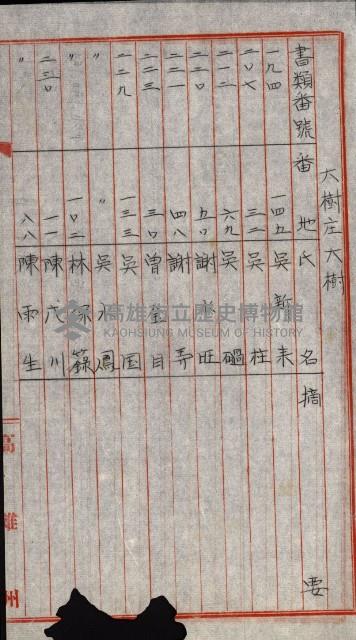 大樹庄大樹
書類番號 番地 氏名 摘要
一九四 一四五 吳新來
二〇七 三二 吳 柱
二一二 六九 吳 碢
二二〇 五〇 謝 旺
二二一 四八 謝 弄
二二三 三〇 曾 目
二二九 一三三 吳 国
〃 〃 吳 鳳
〃 一〇二 林 錄
二三〇 一一 陳 川
〃 八八 陳雨生
高雄州
高雄市立歷史博物館
KAOHSIUNG MUSEUM OF HISTORY